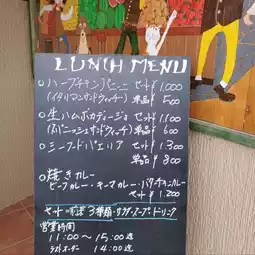 LUNCH MENU
○ハーブチキンパニーニ セット¥1,000
(イタリアンサンドウィッチ) 単品¥500
○生ハムボカディージョ セット¥1,100
(スパニッシュサンドウィッチ) 単品¥600
○シーフードパエリア セット¥1,300
単品¥800
○焼きカレー
ビーフカレー・キーマカレー・バターチキンカレー
セット¥1,200
セット=前菜3種類・サラダ・スープ・ドリンク
営業時間
11:00～15:00迄
ラストオーダー 14:00迄